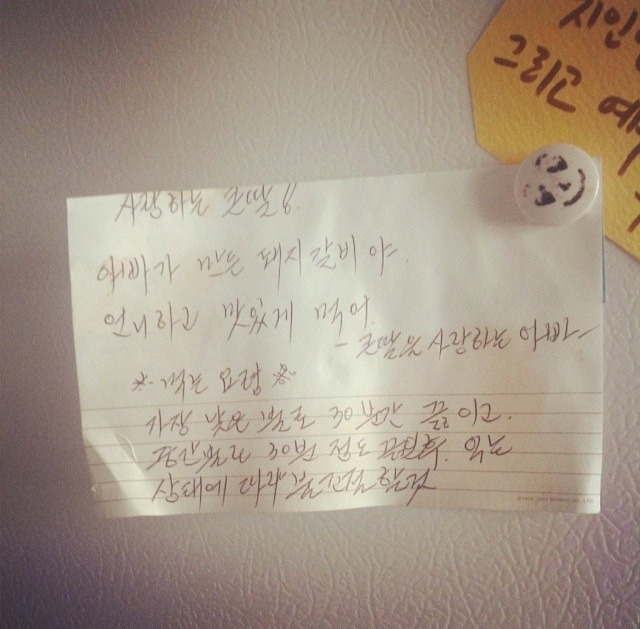 지인
그리고 예
사랑하는 큰딸!
아빠가 만든 돼지갈비야.
언니하고 맛있게 먹어.
- 큰딸을 사랑하는 아빠 -
※ 먹는 요령 ※
가장 낮은 불로 30분간 끓이고.
중간불로 30분 정도 끓인후. 익는
상태에 따라 불조절 할것